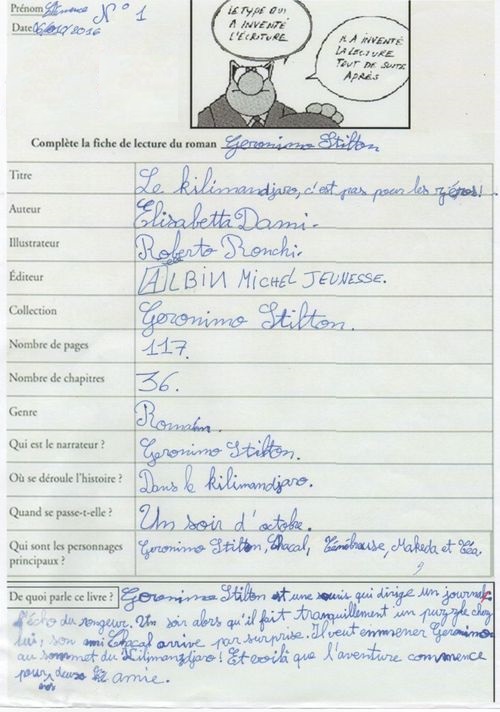 Prénom Clémence N° 1
Date 2016
LE TYPE QUI
A INVENTÉ
L'ÉCRITURE
IL A INVENTÉ
LA LECTURE
TOUT DE SUITE
APRÈS
Complète la fiche de lecture du roman Geronimo Stilton
Titre Le kilimandjaro, c'est pas pour les zéros!
Auteur Elisabetta Dami.
Illustrateur Roberto Ronchi.
Éditeur ALBIN MICHEL JEUNESSE.
Collection Geronimo Stilton.
Nombre de pages 117.
Nombre de chapitres 36.
Genre Roman.
Qui est le narrateur ? Geronimo Stilton.
Où se déroule l'histoire ? Dans le kilimandjaro.
Quand se passe-t-elle ? Un soir d'octobre.
Qui sont les personnages Geronimo Stilton, Chacal, Ténébreuse, Makeda et Téa,
principaux ?
De quoi parle ce livre ? Geronimo Stilton est une souris qui dirige un journal:
l'écho du rongeur. Un soir alors qu'il fait tranquillement un puzzle chez
lui, son ami Chacal arrive par surprise. Il veut emmener Geronimo
au sommet du Kilimandjaro! Et voilà que l'aventure commence
pour deux amie.